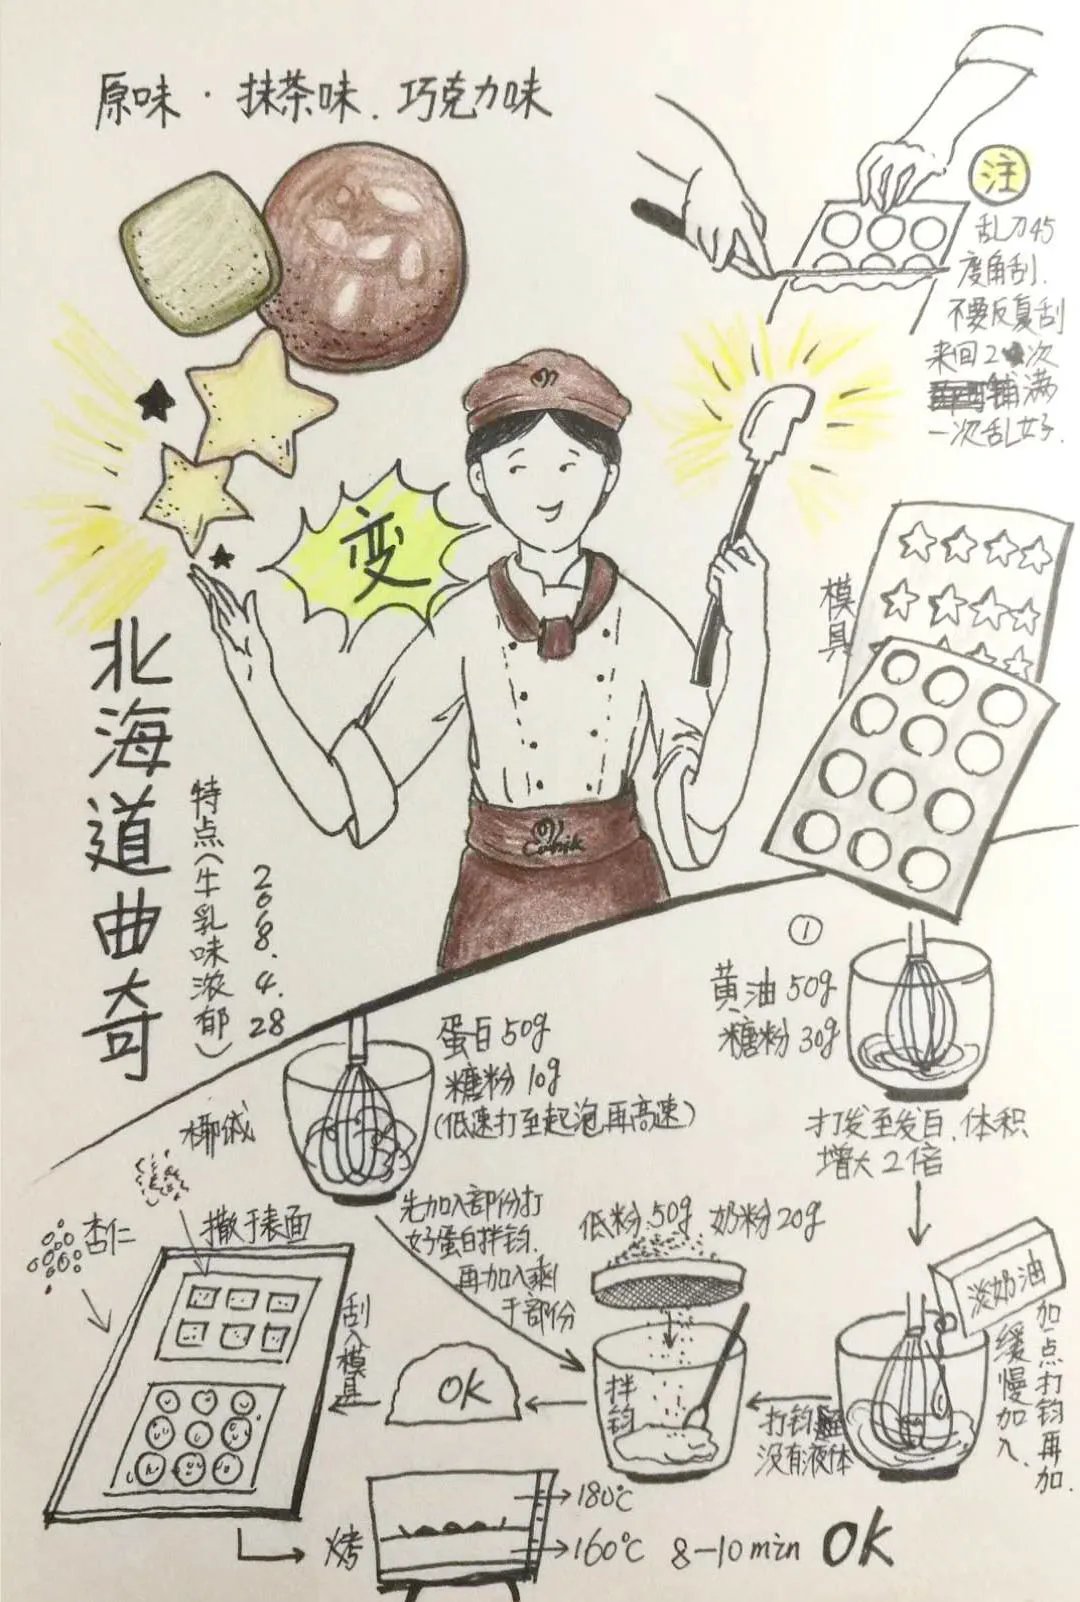 原味·抹茶味、巧克力味
注
乱刀45
度角刮.
不要反复刮
来回2次
铺满
一次乱好.
变
模具
北海道曲奇
特点(牛乳味浓郁)
2018.4.28
①
黄油50g
糖粉30g
打发至发白、体积
增大2倍
蛋白50g
糖粉10g
(低速打至起泡再高速)
椰绒
杏仁
撒于表面
先加入部份打
好蛋白拌钧.
再加入剩
于部份
低粉50g 奶粉20g
淡奶油
加一点打钧再加.
缓慢加入.
打钧
没有液体
拌钧
OK
刮入模具
烤
180℃
160℃ 8-10min OK